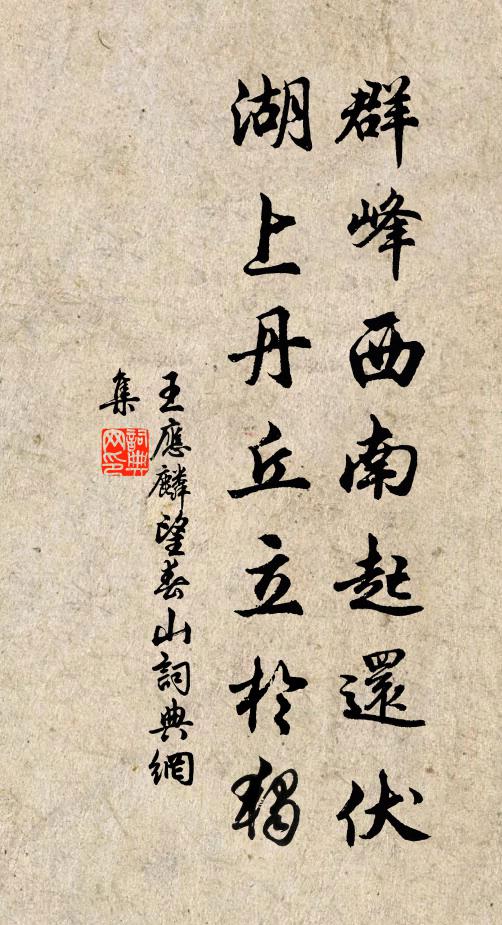 群峰西南起還伏
湖上丹丘立於獨
王應麟望春山詞典網
集
詞典网印